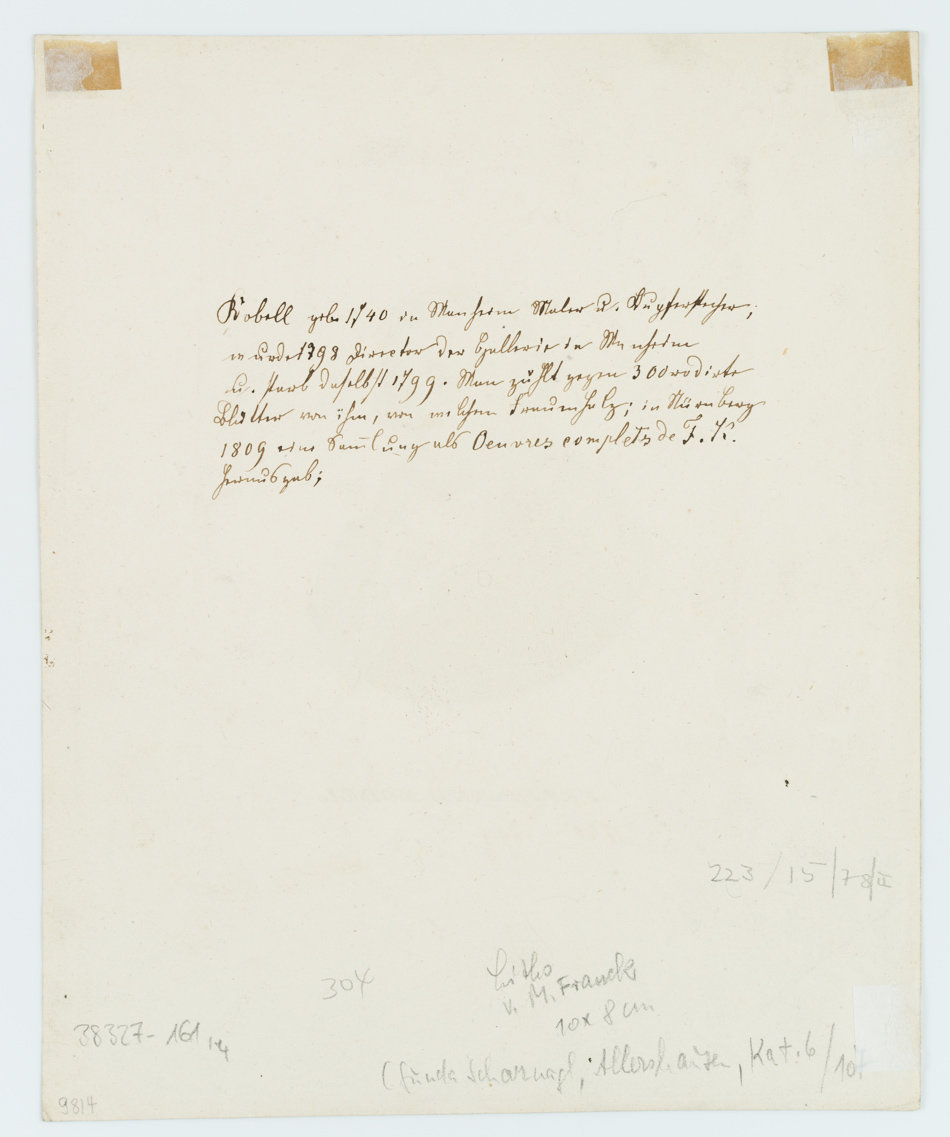 Kobell geb. 1740 in Manheim Maler u. Kupferstecher,
wurde 1798 Director der Gallerie in Manheim
u. starb daselbst 1799. Man zählt gegen 300 radirte
Blätter von ihm, von welchen Frauenholz; in Nürnberg
1809 eine Samlung als Oeuvres complets de F. K.
herausgab;
223/15/78/II
304
Litho
v. M. Franck
10 x 8 cm
38327-161
(Gunda Scharnagl, Allershausen, Kat. 6/10
9814